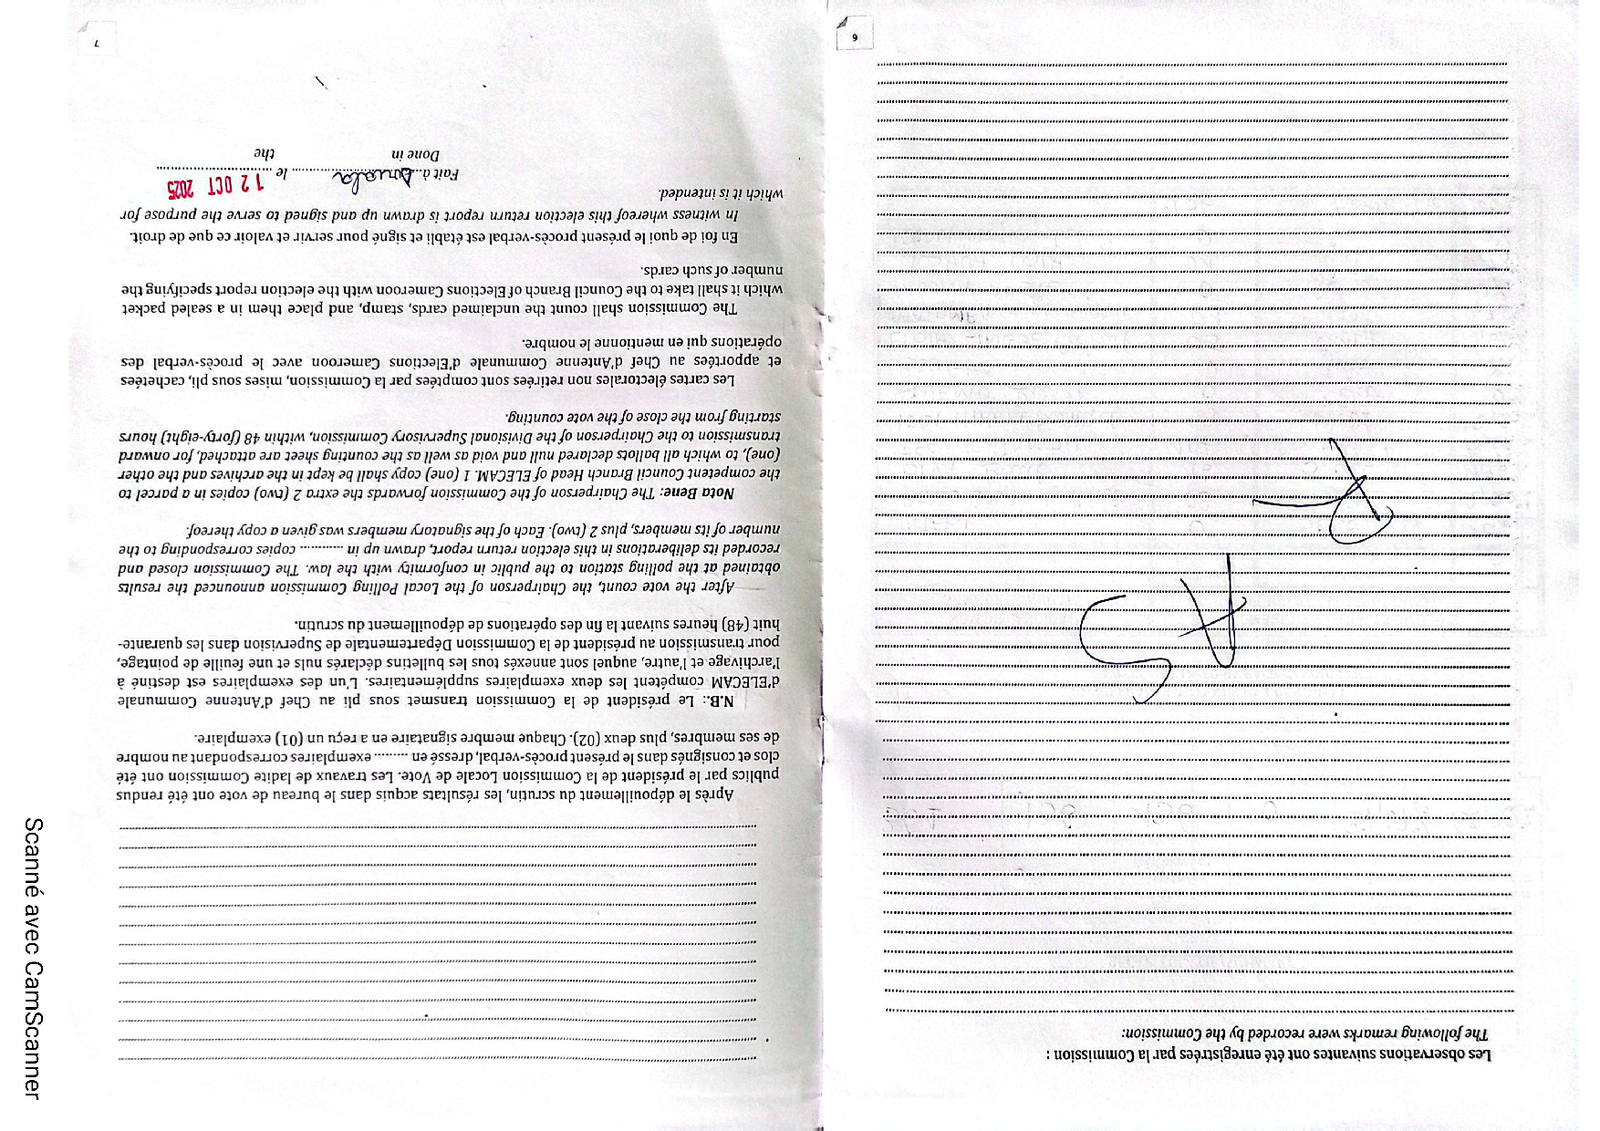 Les observations suivantes ont été enregistrées par la Commission :
The following remarks were recorded by the Commission:
RAS
6
Après le dépouillement du scrutin, les résultats acquis dans le bureau de vote ont été rendus
publics par le président de la Commission Locale de Vote. Les travaux de ladite Commission ont été
clos et consignés dans le présent procès-verbal, dressé en ......... exemplaires correspondant au nombre
de ses membres, plus deux (02). Chaque membre signataire en a reçu un (01) exemplaire.
N.B.: Le président de la Commission transmet sous pli au Chef d'Antenne Communale
d'ELECAM compétent les deux exemplaires supplémentaires. L'un des exemplaires est destiné à
l'archivage et l'autre, auquel sont annexés tous les bulletins déclarés nuls et une feuille de pointage,
pour transmission au président de la Commission Départementale de Supervision dans les quarante-
huit (48) heures suivant la fin des opérations de dépouillement du scrutin.
After the vote count, the Chairperson of the Local Polling Commission announced the results
obtained at the polling station to the public in conformity with the law. The Commission closed and
recorded its deliberations in this election return report, drawn up in ........... copies corresponding to the
number of its members, plus 2 (two). Each of the signatory members was given a copy thereof.
Nota Bene: The Chairperson of the Commission forwards the extra 2 (two) copies in a parcel to
the competent Council Branch Head of ELECAM. 1 (one) copy shall be kept in the archives and the other
(one), to which all ballots declared null and void as well as the counting sheet are attached, for onward
transmission to the Chairperson of the Divisional Supervisory Commission, within 48 (forty-eight) hours
starting from the close of the vote counting.
Les cartes électorales non retirées sont comptées par la Commission, mises sous pli, cachetées
et apportées au Chef d'Antenne Communale d'Elections Cameroon avec le procès-verbal des
opérations qui en mentionne le nombre.
The Commission shall count the unclaimed cards, stamp, and place them in a sealed packet
which it shall take to the Council Branch of Elections Cameroon with the election report specifying the
number of such cards.
En foi de quoi le présent procès-verbal est établi et signé pour servir et valoir ce que de droit.
In witness whereof this election return report is drawn up and signed to serve the purpose for
which it is intended.
Fait à Douala le 12 OCT 2025
Done in the
7
Scanné avec CamScanner